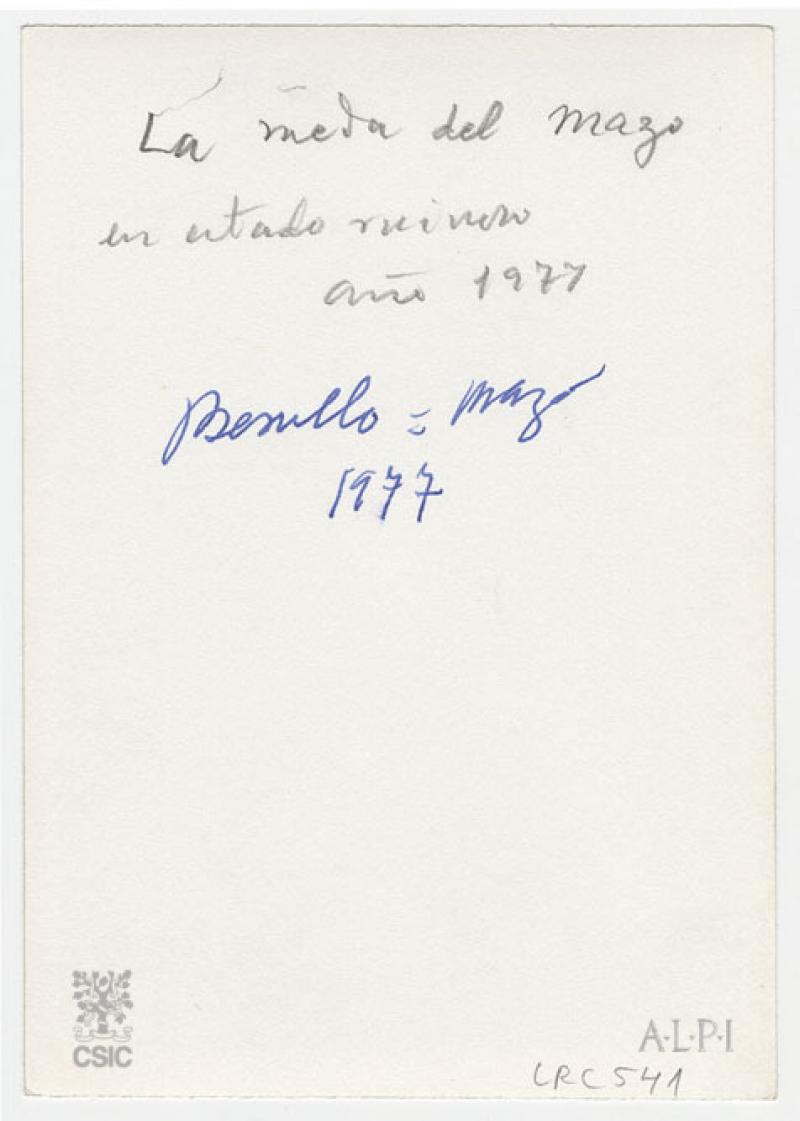 La rueda del mazo
en estado ruinoso
año 1977
Besullo = mazo
1977
CSIC
A·L·P·I
LRC 541